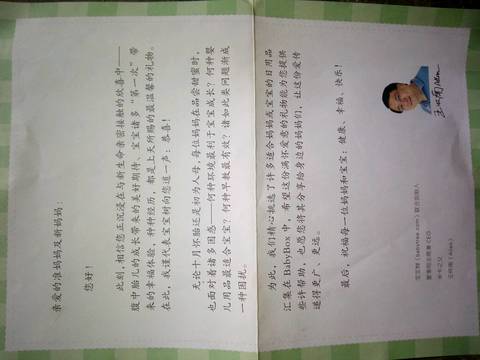 亲爱的准妈妈及新妈妈：
您好！
此刻，相信您正沉浸在与新生命亲密接触的欣喜中——
腹中胎儿的成长带来的美好期待、宝宝诸多“第一次”带
来的幸福体验，种种经历，都是上天所赐的最温馨的礼物。
在此，我谨代表宝宝树向您道一声：恭喜！
无论十月怀胎还是初为人母，每位妈妈在品尝甜蜜时，
也面对着诸多困惑——何种环境最利于宝宝成长？何种婴
儿用品最适合宝宝？何种早教最有效？诸如此类问题渐成
一种困扰。
为此，我们精心挑选了许多适合妈妈或宝宝的日用品
汇集在 BabyBox 中，希望这份满怀爱意的礼物能为您提供
些许帮助，也愿您将其分享给身边的妈妈们，让这份爱传
递得更广、更远。
最后，祝福每一位妈妈和宝宝：健康、幸福、快乐！
宝宝树（babytree.com）联合创始人
董事局主席兼 CEO
米卡之父
王怀南（Allen）